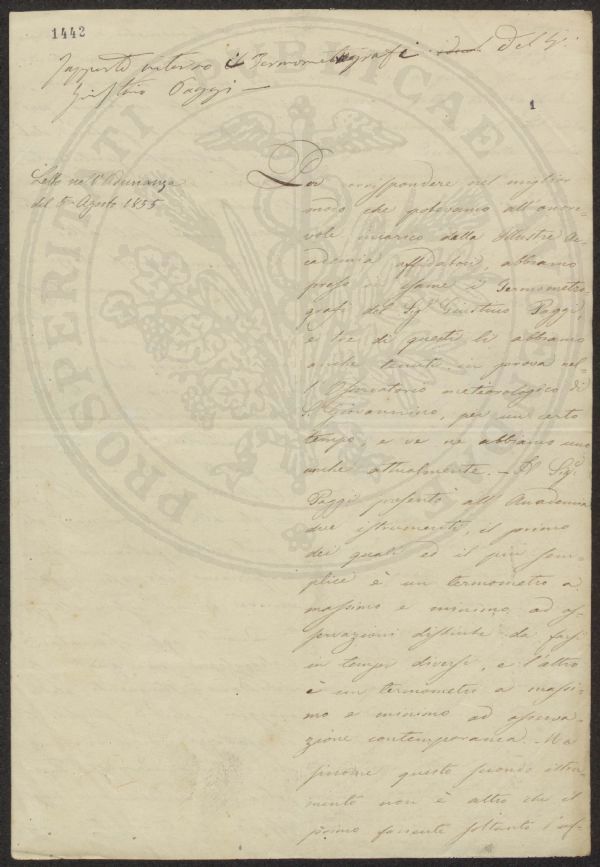 1442
Rapporto intorno i Termometrografi del S.
Giustino Paggi —
1
Letto nell'Adunanza
del 5 Agosto 1855
Per corrispondere nel miglior
modo che potevamo all'onore-
vole incarico dalla Illustre Ac-
cademia affidatoci, abbiamo
preso in esame i Termometro
grafi del Sig.r Giustino Paggi,
e tre di questi li abbiamo
anche tenuti in prova nel-
l'Osservatorio meteorologico di
S. Giovannino, per un certo
tempo, e ve ne abbiamo uno
anche attualmente. — Il Sig.r
Paggi presentò all'Accademia
due istrumenti, il primo
dei quali ed il più sem-
plice è un termometro a
massimo e minimo ad os-
servazioni distinte da farsi
in tempi diversi, e l'altro
è un termometro a massi-
mo e minimo ad osserva-
zione contemporanea. Ma
siccome questo secondo istru-
mento non è altro che il
primo facente soltanto l'uf-
PROSPERITATI PUBLICAE